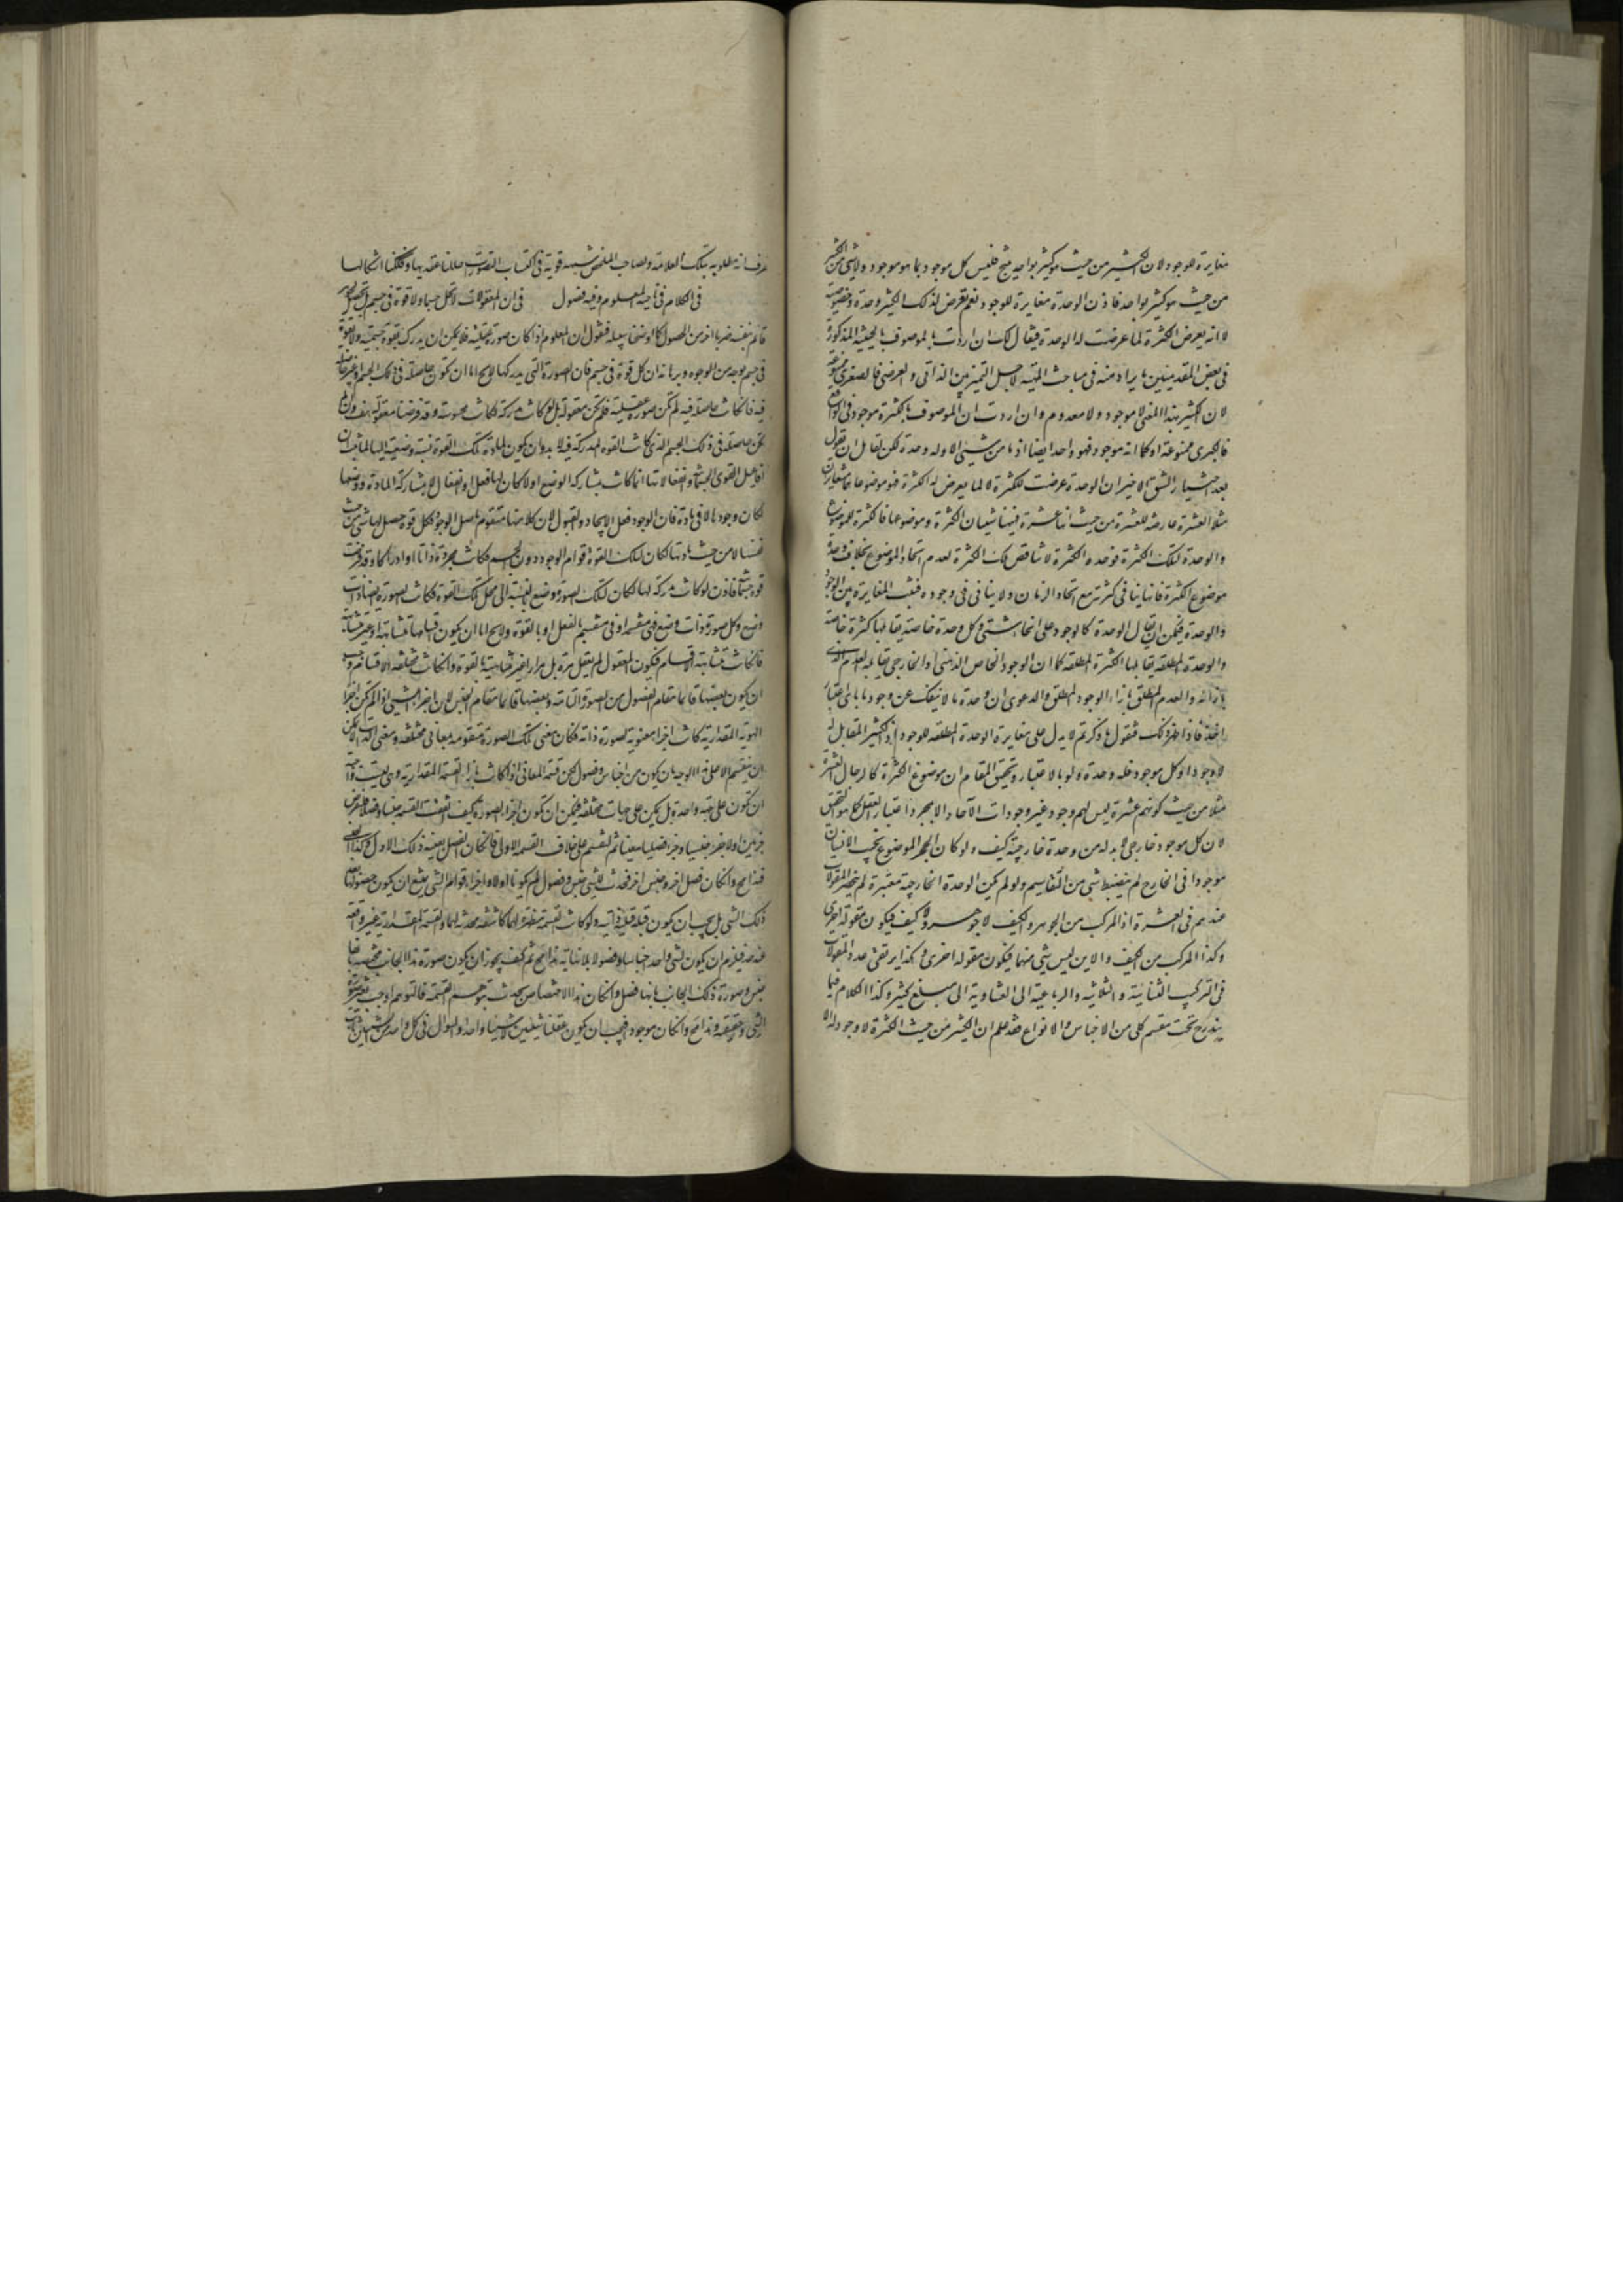 مغايرة للوجود لان الكثير من حيث هو كثير بواحد ينتج فليس كل موجود بما هو موجود ولا شئ من الكثير
من حيث هو كثير بواحد فاذن الوحدة مغايرة للوجود نعم تعرض لذلك الكثير وحدة وخصوصية
لا انه يعرض الكثرة لما عرضت له الوحدة فيقال لك ان اردت بالموصوف بالحيثية المذكورة
فى بعض المقدمتين ما يراد منه فى مباحث المهية لاجل التميز بين الذاتى والعرضى فالصغرى ممنوعة
لان الكثير بهذا المعنى لا موجود ولا معدوم وان اردت ان الموصوف بالكثرة موجود فى الواقع
فالكبرى ممنوعة اذ كما انه موجود فهو واحد ايضا اذ ما من شئ الا وله وحدة لكن لقائل ان يقول
بعد اختيار الشق الاخير ان الوحدة عرضت للكثرة لا لما يعرض له الكثرة فموضوعاهما متغايران
مثلا العشرة عارضة للعشرة من حيث انها عشرة فههنا شيئان الكثرة وموضوعها فالكثرة للموضوع
والوحدة لتلك الكثرة فوحدة الكثرة لا تناقض تلك الكثرة لعدم اتحاد الموضوع بخلاف وحدة
موضوع الكثرة فانها ينافى كثرته مع اتحاد الزمان ولا ينافى فى وجوده فثبت المغايرة بين الوجود
والوحدة فيمكن ان يقال الوحدة كالوجود على انحاء شتى وكل وحدة خاصة يقابلها كثرة خاصة
والوحدة المطلقة يقابلها الكثرة المطلقة كما ان الوجود الخاص الذهنى او الخارجى يقابله العدم الذى
بازائه والعدم المطلق بازاء الوجود المطلق والدعوى ان وحدة ما لا ينفك عن وجود ما باى اعتبار
اخذ فاذا ظهر ذلك فنقول ما ذكرتم لا يدل على مغايرة الوحدة المطلقة للوجود اذ الكثير المقابل له
لا وجود له اذ كل موجود فله وحدة ولو بالاعتبار وتحقيق المقام ان موضوع الكثرة كالرجال العشرة
مثلا من حيث كونهم عشرة ليس لهم وجود غير وجودات الآحاد الا بمجرد اعتبار العقل كما هو التحقيق
لان كل موجود خارجى لا بد له من وحدة خارجية كيف ولو كان الحجر الموضوع بجنب الانسان
موجودا فى الخارج لم ينضبط شئ من التقاسيم ولو لم يكن الوحدة الخارجية معتبرة لم ينحصر المقولات
عندهم فى العشرة اذ المركب من الجوهر والكيف لا جوهر ولا كيف فيكون مقولة اخرى
وكذا المركب من الكيف والاين ليس بشئ منهما فيكون مقولة اخرى وكذا يرتقى عدد المقولات
فى التركيب الثنائية والثلاثية والرباعية الى العشارية الى مبلغ كثير وكذا الكلام فيما
يندرج تحت مقسم كلى من الاجناس والانواع فقد علم ان الكثير من حيث الكثرة لا وجود له الا
عرف انه مطلوبه بتلك العلامة ولصاحب الملخص شبهة قوية فى اكتساب التصورات حللنا عقدها وفككنا اشكالها
فى الكلام فى ناحية المعلوم وفيه فصول فى ان المعقولات لا تحل جسما ولا قوة فى جسم بل بجوهر
قائم بنفسه ضربا اخر من الحصول كما اوضحنا سبيله فنقول ان المعلوم اذا كان صورة عقلية فلا يمكن ان يدرك بقوة جسمية ولا بقوة
فى جسم بوجه من الوجوه وبرهانه ان كل قوة فى جسم فان الصورة التى يدركها لا يخ اما ان تكون حاصلة فى ذلك الجسم او غير حاصلة
فيه فان كانت حاصلة فيه لم تكن صورة عقلية فلم تكن معقولة بل كانت مدركة لكانت محسوسة وقد فرضنا معقولة هف وان لم
تكن حاصلة فى ذلك الجسم الذى كانت القوة المدركة فيه لا بد وان يكون لمادة تلك القوة نسبة وضعية اليها لما ثبت ان
افاعيل القوى الجسمية وانفعالاتها انما كانت بمشاركة الوضع اذ لو كان لها فعل او انفعال لا بمشاركة المادة ووضعها
لكان وجودها لا فى مادة فان الوجود فعل الايجاد والقبول لان كلا منهما متقوم باصل الوجود فكل قوة حصل لها شئ من حيث
نفسها لا من حيث مادتها لكان لتلك القوة قوام الوجود دون الجسم فكانت مجردة ذاتا وادراكا وقد فرضت
قوة جسمية فاذن لو كانت مدركة لها لكان لتلك الصورة وضع بالنسبة الى محل تلك القوة فكانت الصورة ايضا ذات
وضع وكل صورة ذات وضع فهى منقسمة او فى منقسم بالفعل او بالقوة ولا يخ اما ان يكون اقسامها متشابهة او غير متشابهة
فان كانت متشابهة الاقسام فيكون المعقول لم يعقل مرة بل مرارا غير متناهية بالقوة وان كانت مختلفة الاقسام وجب
ان يكون بعضها قائما مقام الفصول من الصورة التامة وبعضها قائما مقام الجنس لان اجزاء الشئ اذا لم تكن اجزاء
الهوية المقدارية كانت اجزاء معنوية لصورة ذاته فكان معنى تلك الصورة متقومة بمعانى مختلفة ومعنى الذات لا يمكن
ان ينقسم الا على هذا الوجه بان يكون من اجناس وفصول لكن قسمة المعانى اذا كانت بازاء القسمة المقدارية وهى ليست واجبة
ان تكون على جهة واحدة بل يمكن على جهات مختلفة فيمكن ان تكون اجزاء الصورة كيف اتفقت القسمة جنسا وفصلا فلنفرض
جزئين اولا جزء جنسيا وجزء فصليا معينا ثم لنقسم على خلاف القسمة الاولى فان كان الفصل بعينه ذلك الاول وكذا الجنس
فهذا مح وان كان فصل اخر وجنس اخر فحدث للشئ جنس وفصول لم يكونا اولا واجزاء قوام الشئ يمتنع ان يكون حصولها بعد
ذلك الشئ بل يجب ان يكون قبله قبلية ذاتية ولو كانت القسمة مظهرة لها كاشفة لا محدثة لها والقسمة المقدارية غير واقعة
عند حد فيلزم ان يكون لشئ واحد اجناسا وفصولا بلا نهاية هذا مح ثم كيف يجوز ان يكون صورة هذا الجانب مختصة بانها
جنس وصورة ذلك الجانب بانها فصل وان كان هذا الاختصاص يحدث بتوهم القسمة فالتوهم اوجب تغير صورة
الشئ وحقيقته وهذا مح وان كان موجودا فيجب ان يكون عقلنا شيئين لا شيئا واحدا والسؤال فى كل واحد من الشيئين ثابت